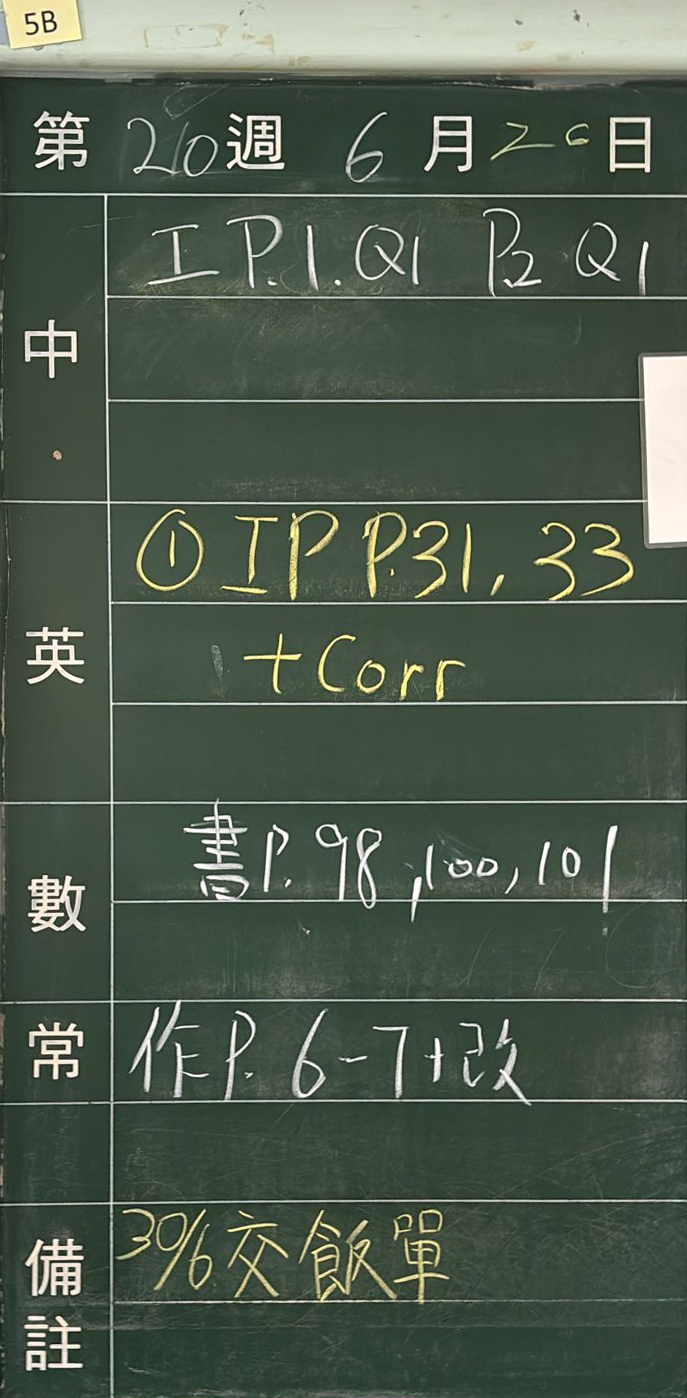 5B
第 20 週 6 月 26 日
中
I P.1.Q1 P.2 Q1
英
① IP P.31, 33
+ Corr
數
書P. 98, 100, 101
常
作P. 6-7+改
備註
30/6 交飯單